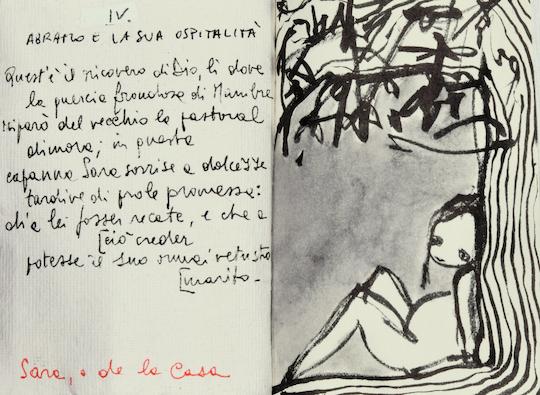 IV.
ABRAMO E LA SUA OSPITALITÀ
Quest'è il ricovero di Dio, lì dove
la quercia frondosa di Mambre
Riparò del vecchio la pastoral
dimora; in questa
capanna Sara sorrise a dolcezze
tardive di prole promessa:
di a lei fosser recate, e che a
[ciò creder
potesse il suo omai vetusto
[marito.
Sara, o de la Casa